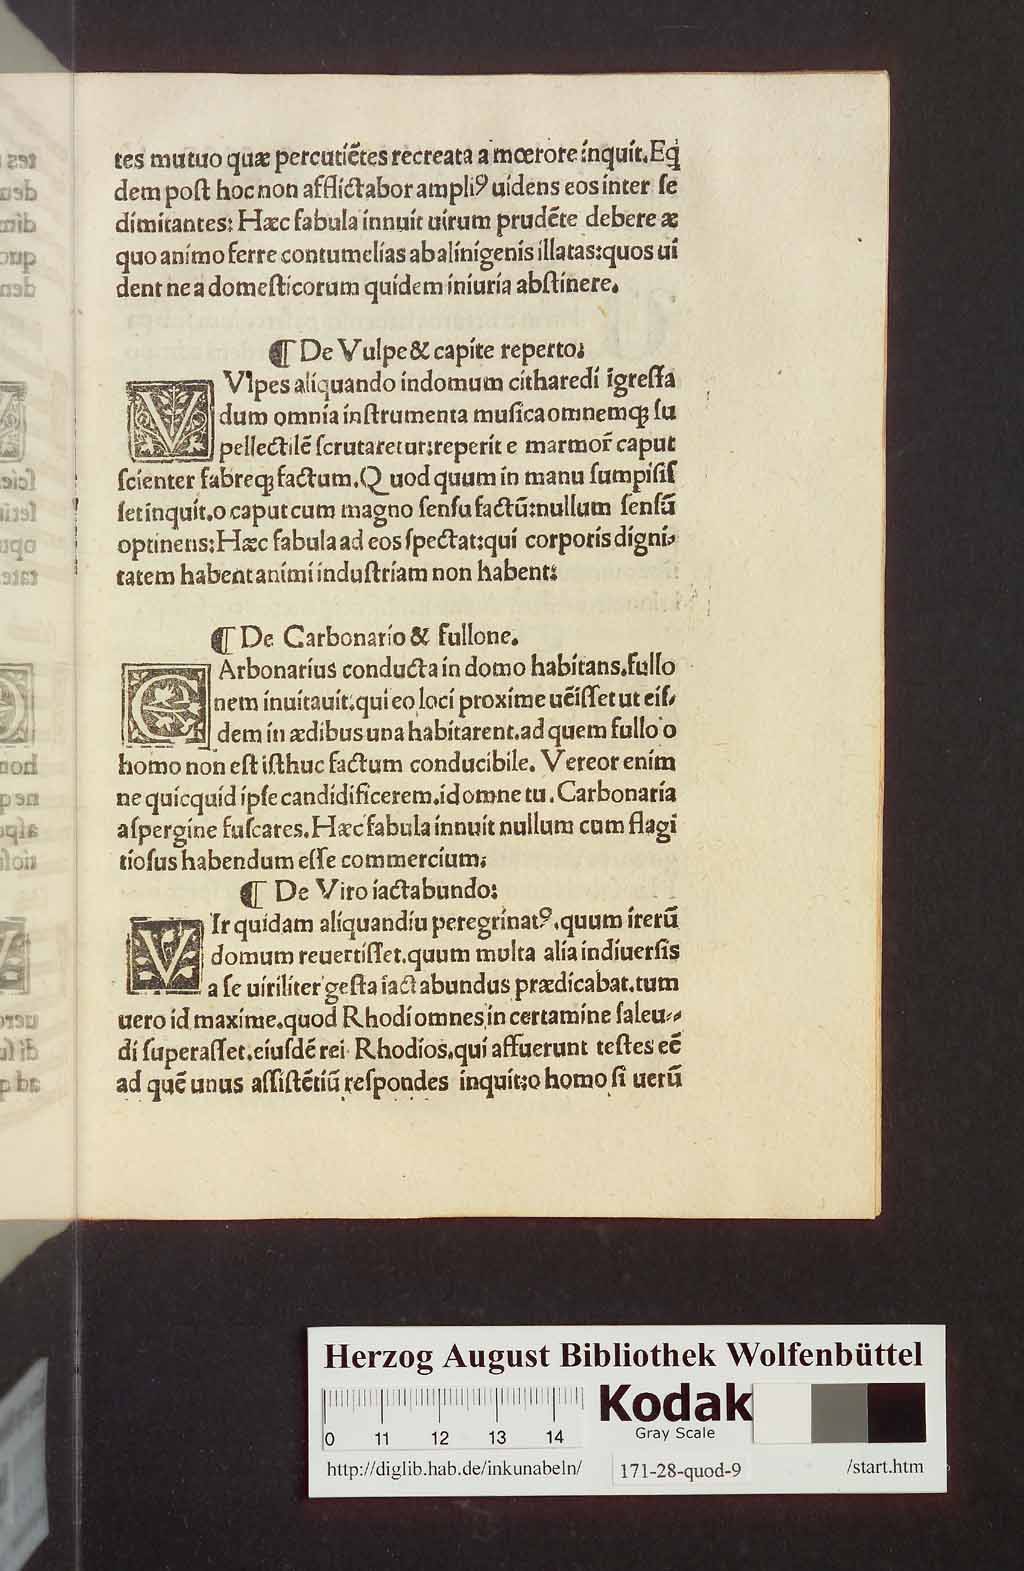 tes mutuo quæ percutiẽtes recreata a mœrore inquit. Eq̃
dem poſt hoc non afflictabor ampliꝰ uidens eos inter ſe
dimitantes: Hæc fabula innuit uirum prudẽte debere æ
quo animo ferre contumelias ab alinigenis illatas: quos ui
dent ne a domeſticorum quidem iniuria abſtinere.
¶ De Vulpe & capite reperto:
Vlpes aliquando in domum citharedi ĩgreſſa
dum omnia inſtrumenta muſica omnemqꝫ ſu
pellectilẽ ſcrutaretur: reperit e marmor̃ caput
ſcienter fabreqꝫ factum. Quod quum in manu ſumpiſiſ
ſet inquit. o caput cum magno ſenſu factũ: nullum ſenſũ
optinens: Hæc fabula ad eos ſpectat: qui corporis digni-
tatem habent animi induſtriam non habent:
¶ De Carbonario & fullone.
CArbonarius conducta in domo habitans. fullo
nem inuitauit. qui eo loci proxime uẽiſſet ut eiſ-
dem in ædibus una habitarent. ad quem fullo o
homo non eſt iſthuc factum conducibile. Vereor enim
ne quicquid ipſe candidificerem. id omne tu. Carbonaria
aſpergine fuſcares. Hæc fabula innuit nullum cum flagi
tioſus habendum eſſe commercium:
¶ De Viro iactabundo:
VIr quidam aliquandiu peregrinatꝰ. quum iterũ
domum reuertiſſet. quum multa alia in diuerſis
a ſe uiriliter geſta iactabundus prædicabat. tum
uero id maxime. quod Rhodi omnes in certamine ſaleu-
di ſuperaſſet. eiuſdẽ rei Rhodios. qui affuerunt teſtes eẽ
ad quẽ unus aſſiſtẽtiũ reſpondes inquit: o homo ſi uerũ
Herzog August Bibliothek Wolfenbüttel
Kodak
Gray Scale
0 11 12 13 14
http://diglib.hab.de/inkunabeln/ 171-28-quod-9 /start.htm